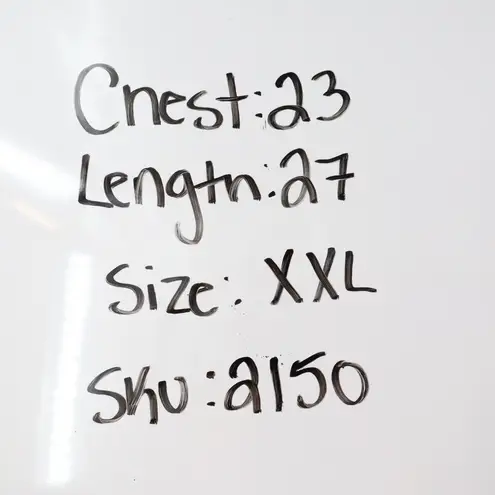 Chest: 23
Length: 27
Size: XXL
Sku: 2150